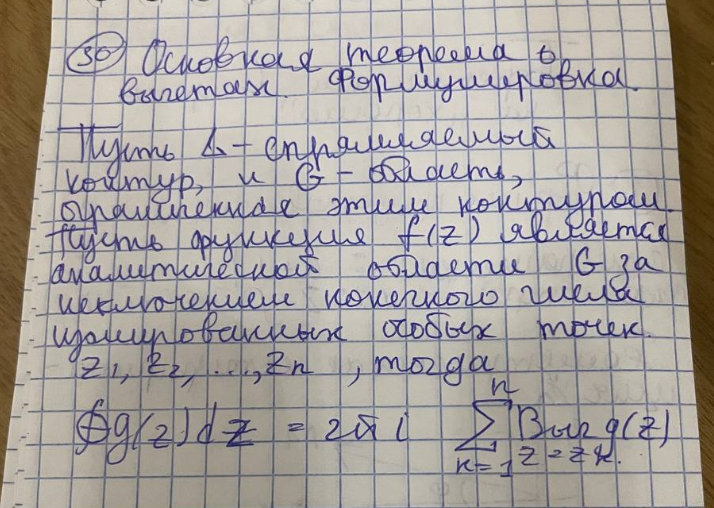 30 Основная теорема о
вычетах. Формулировка.
Пусть Δ - спрямляемый
контур, и G - область,
ограниченная этим контуром.
Пусть функция f(z) является
аналитической области G за
исключением конечного числа
изолированных особых точек
z₁, z₂, ..., zn, тогда
∮g(z)dz = 2πi ∑ Выч g(z)
n
k=1 z=zk.